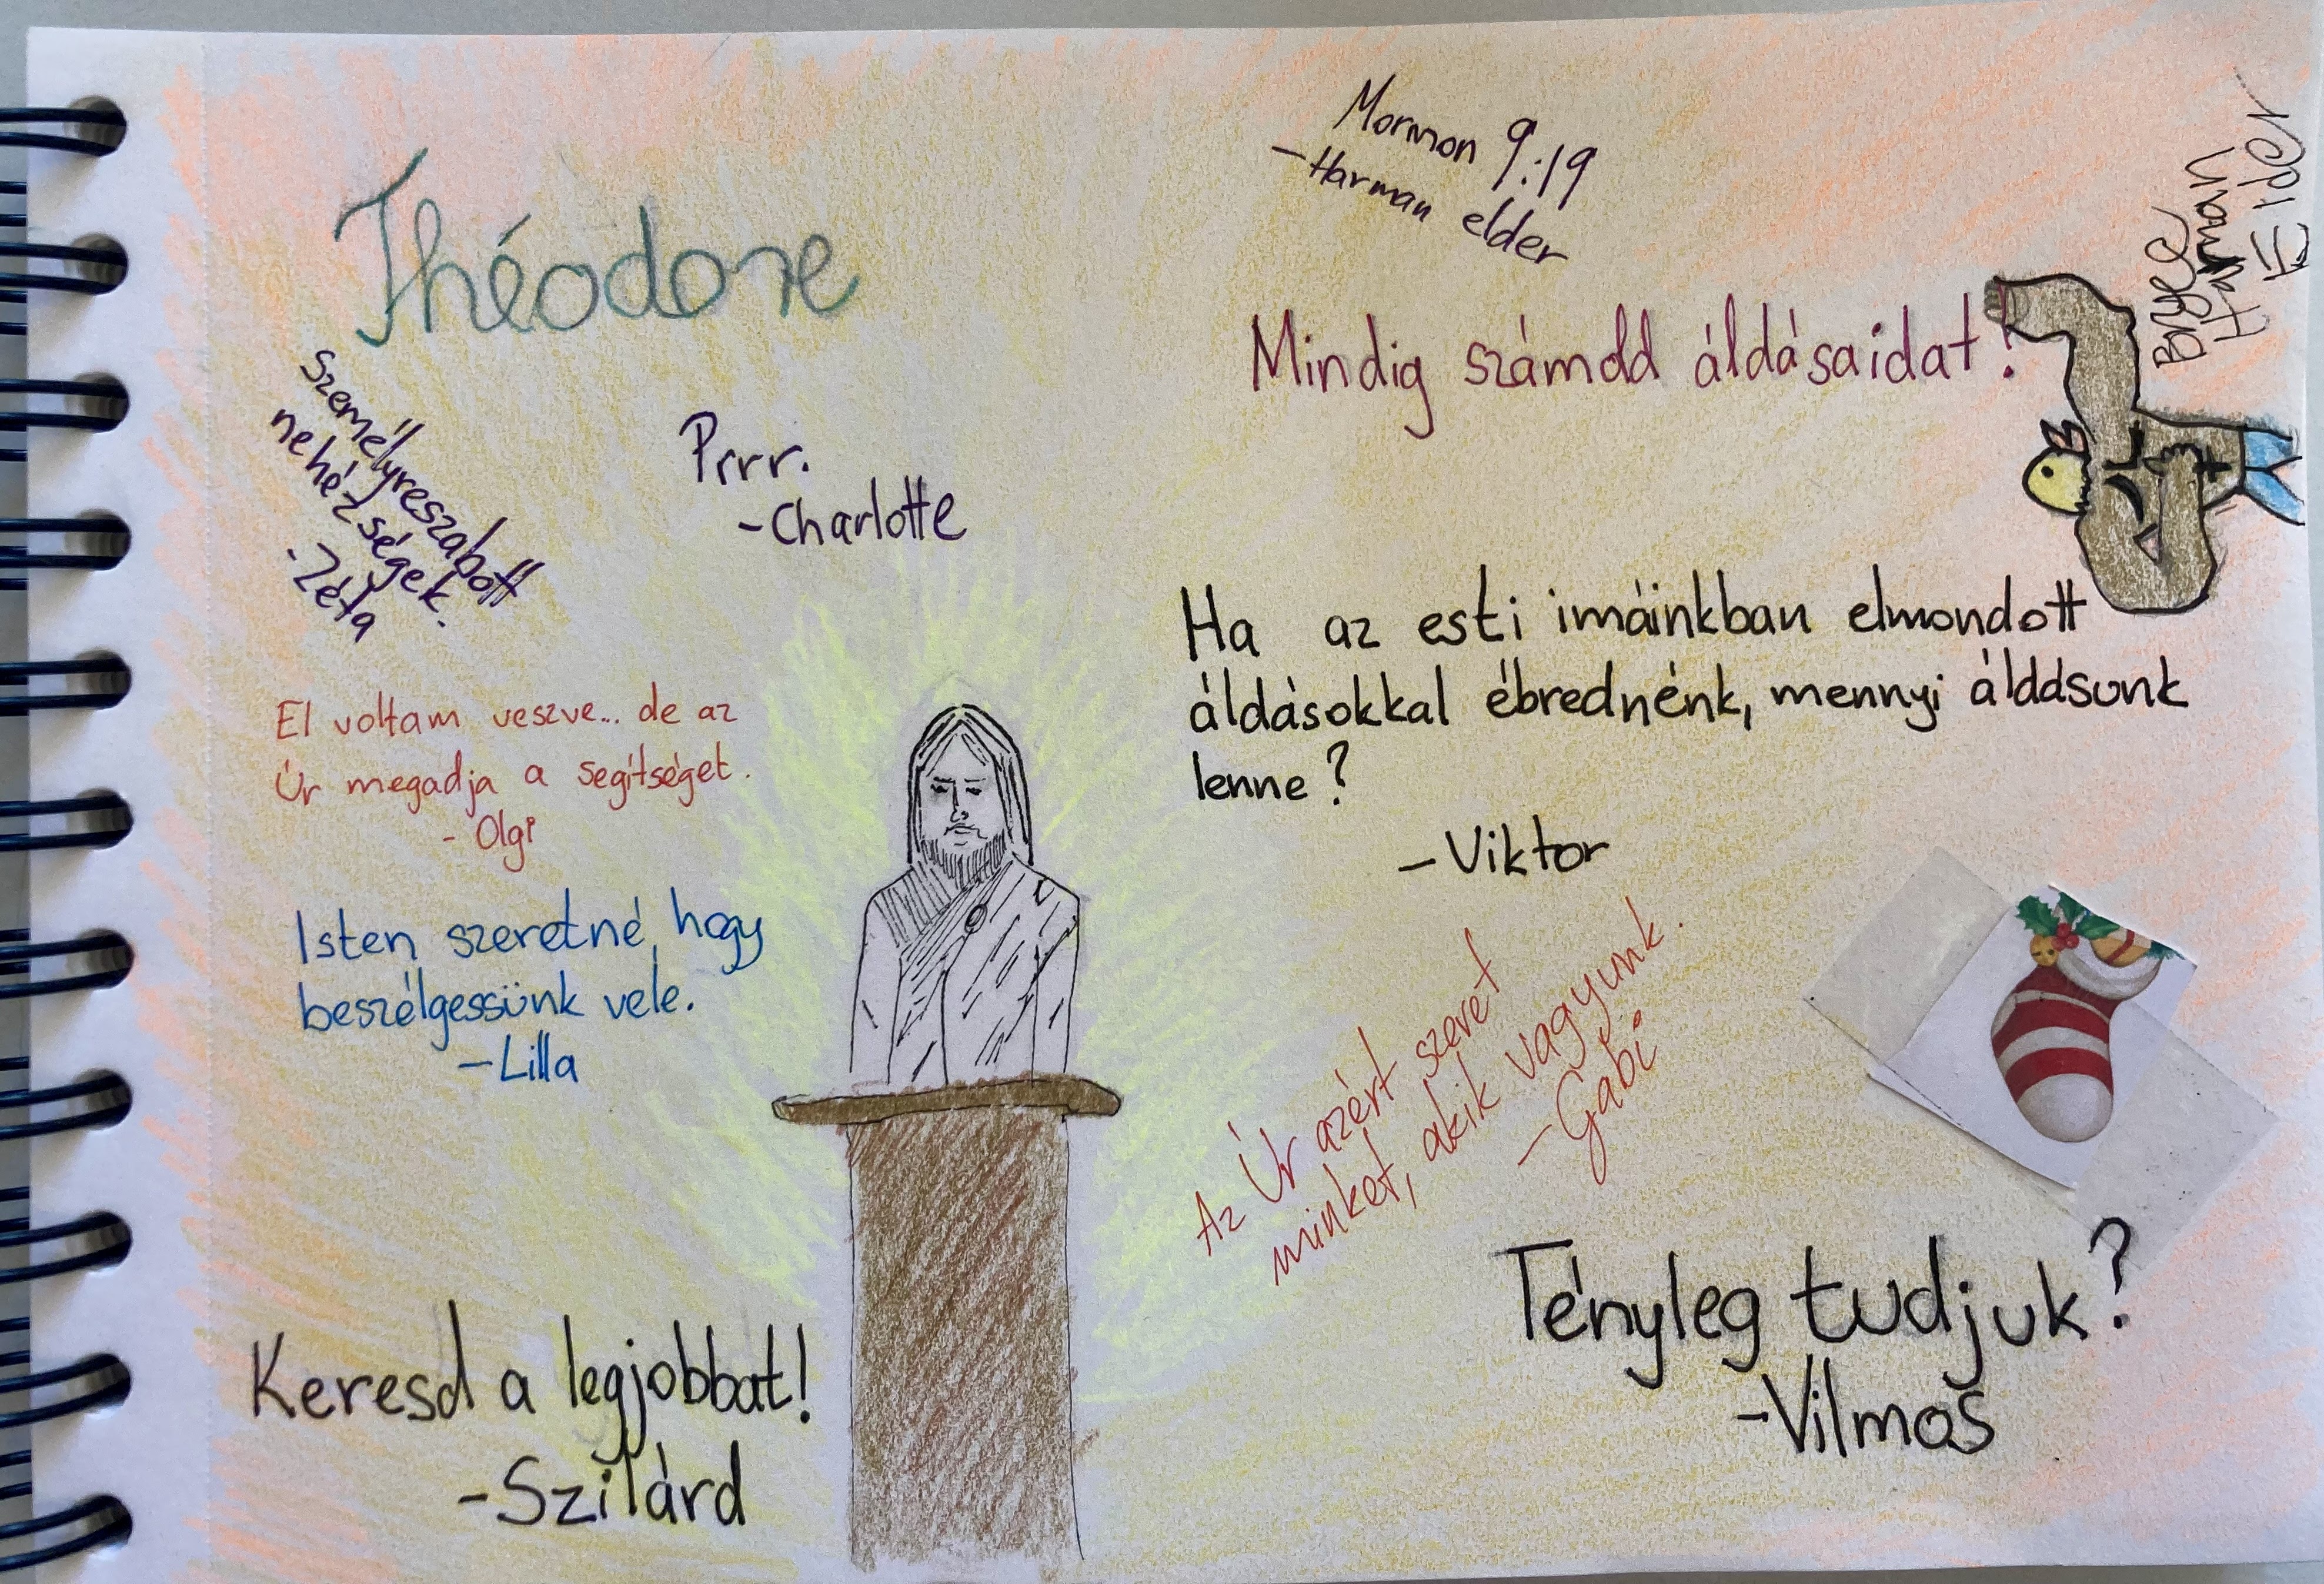 Théodore
Személyreszabott
nehézségek.
-Zéta
Prrr.
-Charlotte
El voltam veszve... de az
Úr megadja a segítséget.
- Olgi
Isten szeretné, hogy
beszélgessünk vele.
-Lilla
Keresd a legjobbat!
-Szilárd
Mormon 9:19
-Harman elder
Mindig számold áldásaidat!
Bryce
Harman
Elder
Ha az esti imáinkban elmondott
áldásokkal ébrednénk, mennyi áldásunk
lenne?
-Viktor
Az Úr azért szeret
minket, akik vagyunk.
-Gabi
Tényleg tudjuk?
-Vilmos